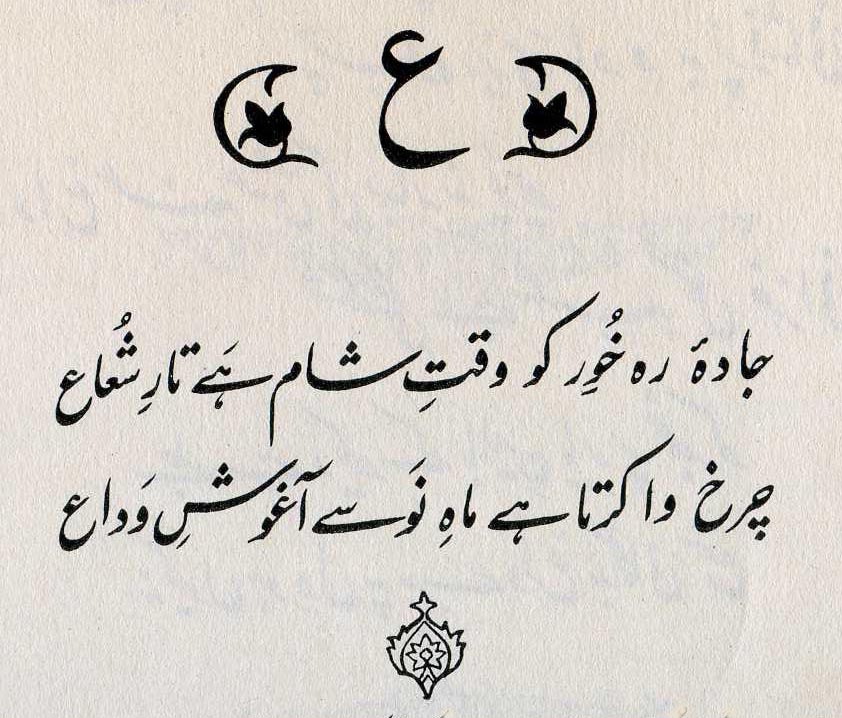 ع
جادۂ رہ خُور کو وقتِ شام ہَے تارِ شُعاع
چرخ وا کرتا ہے ماہِ نَو سے آغوشِ وَداع